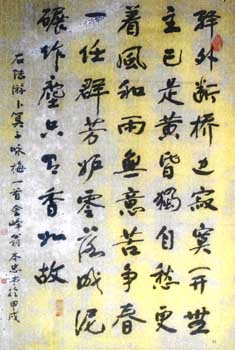 驿外断桥边寂寞开無
主已是黄昏獨自愁更
着風和雨無意苦争春
一任群芳妒零落成泥
碾作塵只有香如故
右陆游卜算子咏梅一首金峰翁本忠书於甲戌